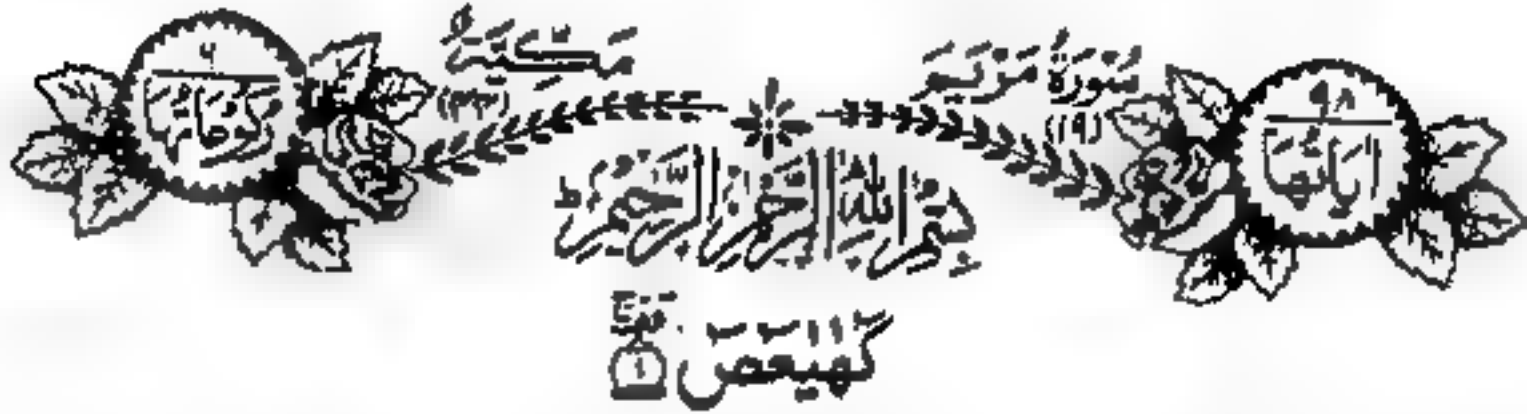 اٰيَاتُهَا ٩٨
سُوْرَةُ مَرْيَمَ (١٩)
مَكِّيَّةٌ (٤٤)
رُكُوْعَاتُهَا ٦
بِسْمِ اللّٰهِ الرَّحْمٰنِ الرَّحِيْمِ
كٓهٰيٰعٓصٓ ١